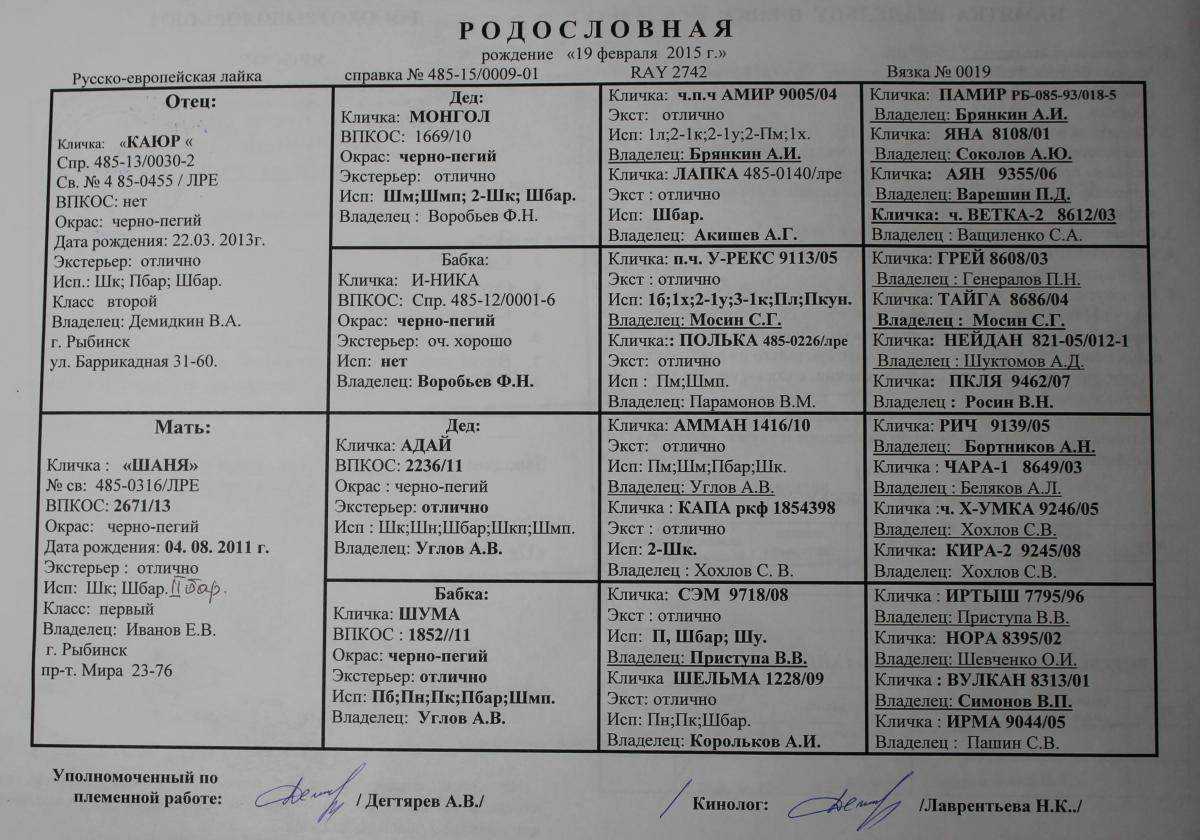 РОДОСЛОВНАЯ
рождение «19 февраля 2015 г.»
Русско-европейская лайка справка № 485-15/0009-01 RAY 2742 Вязка № 0019
Отец:
Кличка: «КАЮР «
Спр. 485-13/0030-2
Св. № 4 85-0455 / ЛРЕ
ВПКОС: нет
Окрас: черно-пегий
Дата рождения: 22.03. 2013г.
Экстерьер: отлично
Исп.: Шк; Пбар; Шбар.
Класс второй
Владелец: Демидкин В.А.
г. Рыбинск
ул. Баррикадная 31-60.
Мать:
Кличка : «ШАНЯ»
№ св: 485-0316/ЛРЕ
ВПКОС: 2671/13
Окрас: черно-пегий
Дата рождения: 04. 08. 2011 г.
Экстерьер : отлично
Исп: Шк; Шбар. II бар.
Класс: первый
Владелец: Иванов Е.В.
г. Рыбинск
пр-т. Мира 23-76
Дед:
Кличка: МОНГОЛ
ВПКОС: 1669/10
Окрас: черно-пегий
Экстерьер: отлично
Исп: Шм;Шмп; 2-Шк; Шбар.
Владелец : Воробьев Ф.Н.
Бабка:
Кличка: И-НИКА
ВПКОС: Спр. 485-12/0001-6
Окрас: черно-пегий
Экстерьер: оч. хорошо
Исп: нет
Владелец: Воробьев Ф.Н.
Дед:
Кличка: АДАЙ
ВПКОС: 2236/11
Окрас : черно-пегий
Экстерьер: отлично
Исп : Шк;Шн;Шбар;Шкп;Шмп.
Владелец: Углов А.В.
Бабка:
Кличка: ШУМА
ВПКОС : 1852//11
Окрас: черно-пегий
Экстерьер: отлично
Исп: Пб;Пн;Пк;Пбар;Шмп.
Владелец: Углов А.В.
Кличка: ч.п.ч АМИР 9005/04
Экст: отлично
Исп: 1л;2-1к;2-1у;2-Пм;1х.
Владелец: Брянкин А.И.
Кличка: ЛАПКА 485-0140/лре
Экст : отлично
Исп: Шбар.
Владелец: Акишев А.Г.
Кличка: п.ч. У-РЕКС 9113/05
Экст : отлично
Исп: 1б;1х;2-1у;3-1к;Пл;Пкун.
Владелец: Мосин С.Г.
Кличка:: ПОЛЬКА 485-0226/лре
Экст: отлично
Исп : Пм;Шмп.
Владелец: Парамонов В.М.
Кличка: АММАН 1416/10
Экст: отлично
Исп: Пм;Шм;Пбар;Шк.
Владелец: Углов А.В.
Кличка : КАПА ркф 1854398
Экст : отлично
Исп: 2-Шк.
Владелец : Хохлов С. В.
Кличка: СЭМ 9718/08
Экст : отлично
Исп: П, Шбар; Шу.
Владелец: Приступа В.В.
Кличка ШЕЛЬМА 1228/09
Экст: отлично
Исп: Пн;Пк;Шбар.
Владелец: Корольков А.И.
Кличка: ПАМИР РБ-085-93/018-5
Владелец: Брянкин А.И.
Кличка: ЯНА 8108/01
Владелец: Соколов А.Ю.
Кличка: АЯН 9355/06
Владелец: Варешин П.Д.
Кличка: ч. ВЕТКА-2 8612/03
Владелец : Ващиленко С.А.
Кличка: ГРЕЙ 8608/03
Владелец : Генералов П.Н.
Кличка: ТАЙГА 8686/04
Владелец : Мосин С.Г.
Кличка: НЕЙДАН 821-05/012-1
Владелец : Шуктомов А.Д.
Кличка: ПКЛЯ 9462/07
Владелец : Росин В.Н.
Кличка: РИЧ 9139/05
Владелец: Бортников А.Н.
Кличка : ЧАРА-1 8649/03
Владелец : Беляков А.Л.
Кличка :ч. Х-УМКА 9246/05
Владелец: Хохлов С.В.
Кличка: КИРА-2 9245/08
Владелец: Хохлов С.В.
Кличка : ИРТЫШ 7795/96
Владелец: Приступа В.В.
Кличка: НОРА 8395/02
Владелец: Шевченко О.И.
Кличка : ВУЛКАН 8313/01
Владелец: Симонов В.П.
Кличка : ИРМА 9044/05
Владелец : Пашин С.В.
Уполномоченный по
племенной работе: / Дегтярев А.В./
/ Кинолог: /Лаврентьева Н.К../